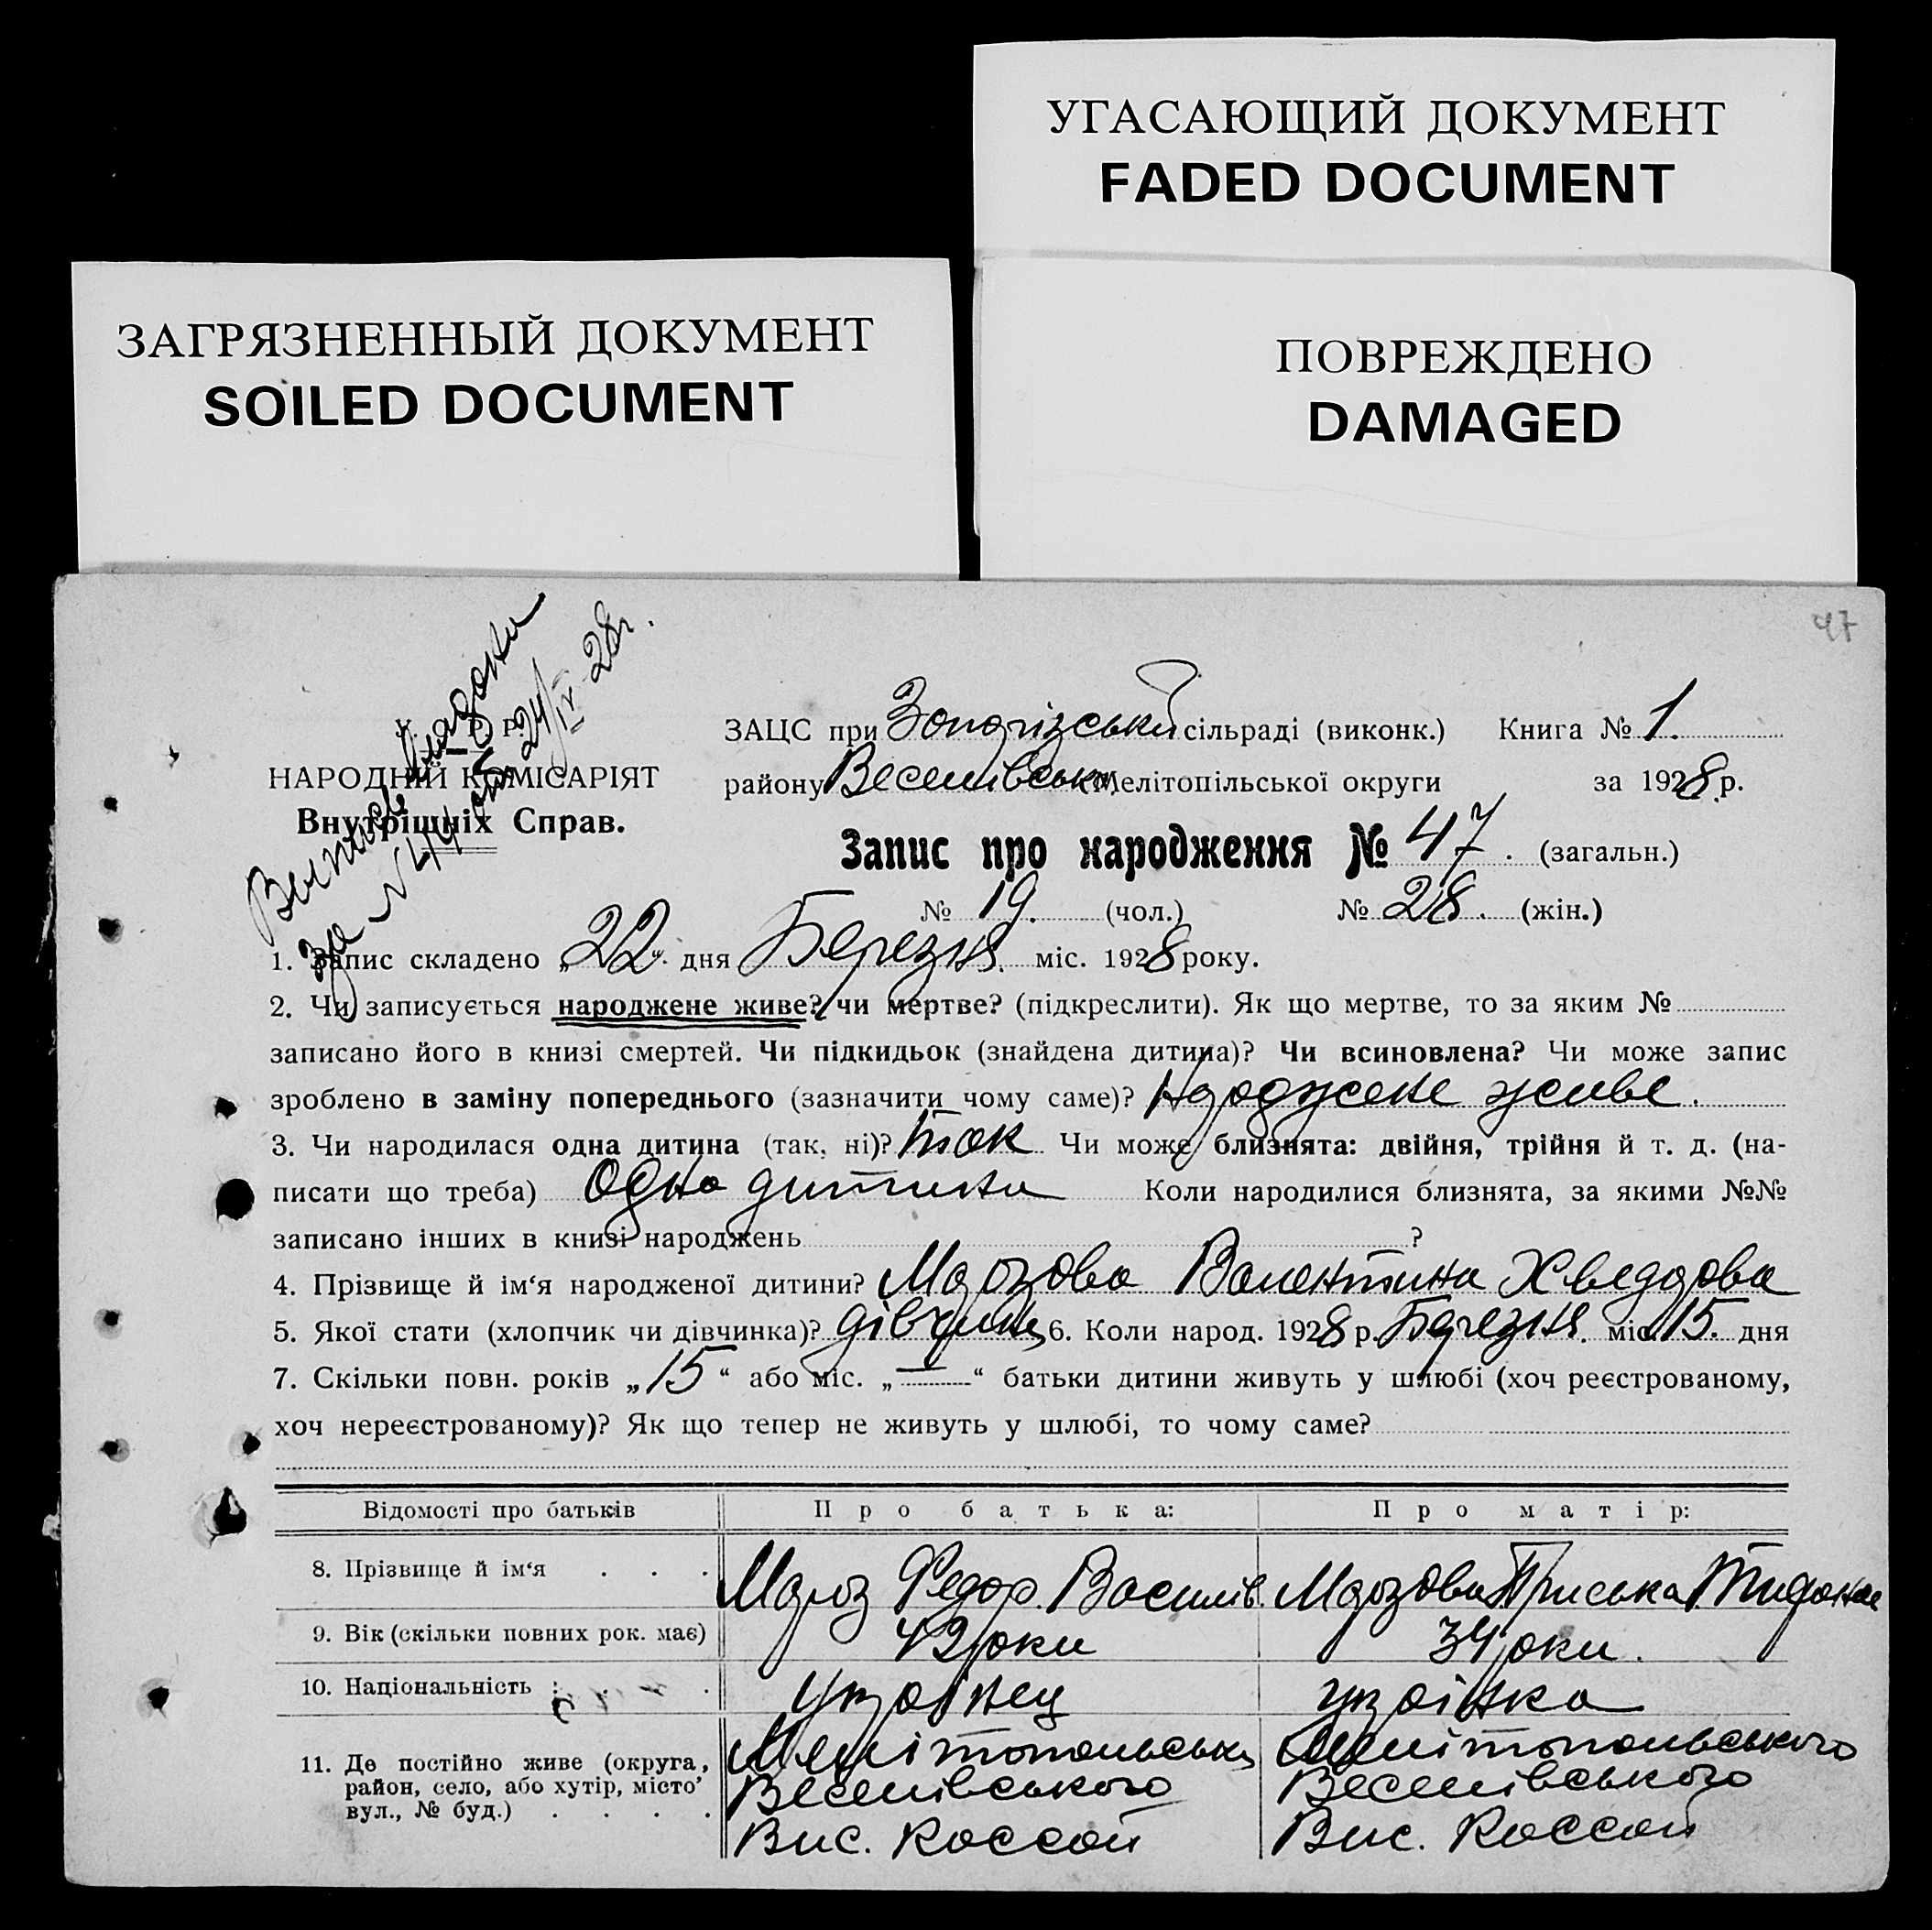 УГАСАЮЩИЙ ДОКУМЕНТ
FADED DOCUMENT
ЗАГРЯЗНЕННЫЙ ДОКУМЕНТ
SOILED DOCUMENT
ПОВРЕЖДЕНО
DAMAGED
47
за № 44 от 24/IV-28 г.
НАРОДНИЙ КОМІСАРІЯТ
Внутрішніх Справ.
ЗАЦС при сільраді (виконк.) Книга № 1.
району Веселівськ Мелітопільської округи за 1928 р.
Запис про народження № 47. (загальн.)
№ 19. (чол.) № 28. (жін.)
1. Запис складено „22“ дня Березня. міс. 1928 року.
2. Чи записується народжене живе? чи мертве? (підкреслити). Як що мертве, то за яким №
записано його в книзі смертей. Чи підкидьок (знайдена дитина)? Чи всиновлена? Чи може запис
зроблено в заміну попереднього (зазначити чому саме)? Народжене живе.
3. Чи народилася одна дитина (так, ні)? так Чи може близнята: двійня, трійня й т. д. (на-
писати що треба) Одна дитина Коли народилися близнята, за якими №№
записано інших в книзі народжень ?
4. Прізвище й ім‘я народженої дитини? Марозова Валентина Хведорова
5. Якої стати (хлопчик чи дівчинка)? дівчина 6. Коли народ. 1928 р. Березня. міс. 15. дня
7. Скільки повн. років „15“ або міс. „—“ батьки дитини живуть у шлюбі (хоч реєстрованому,
хоч нереєстрованому)? Як що тепер не живуть у шлюбі, то чому саме?
Відомості про батьків Про батька: Про матір:
8. Прізвище й ім‘я . . . Мароз Федор. Василів. Марозова Приська
9. Вік (скільки повних рок. має) 42 роки 34 роки.
10. Національність : . . . украінец украінка
11. Де постійно живе (округа, район, село, або хутір, місто’ вул., № буд.) . . . .
Мелітопольськ Мелітопольського
Веселівського Веселівського
Вис. Россой Вис. Россой